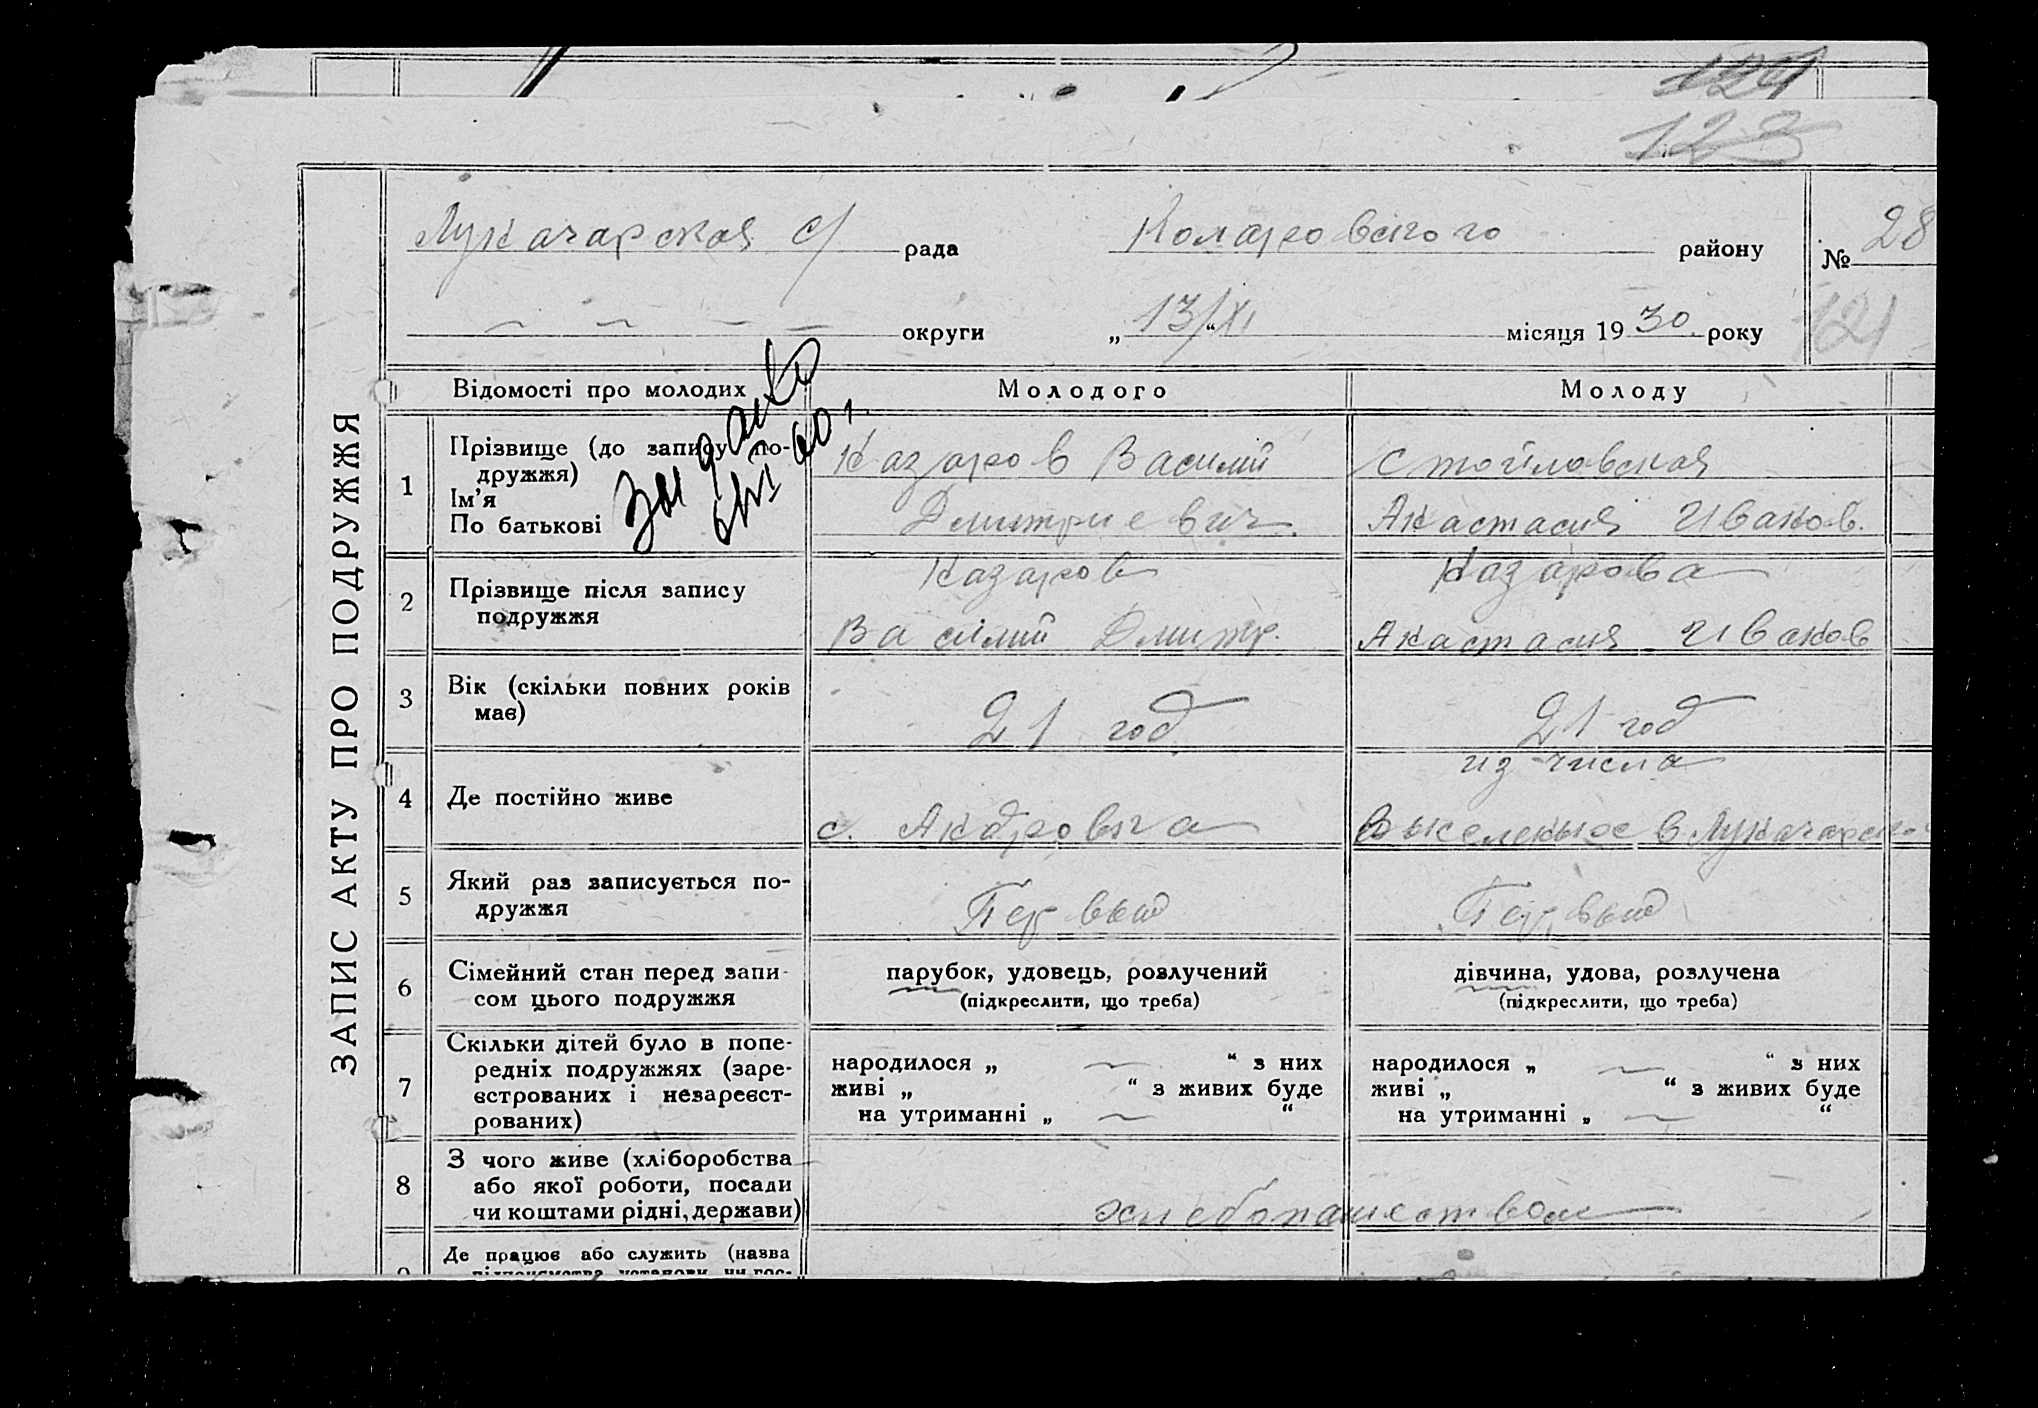 124
123
Лукачарская с/ рада Коларовского району № 28
округи „ 13/XI “ місяця 1930 року 121
ЗАПИС АКТУ ПРО ПОДРУЖЖЯ
Відомості про молодих Молодого Молоду
1 Прізвище (до запису по-
дружжя)
Ім’я
По батькові
Казаров Василий
Дмитриевич
Стойловская
Анастасия Иванов.
2 Прізвище після запису
подружжя
Казаров
Василий Дмитр.
Казарова
Анастасия Иванов
3 Вік (скільки повних років
має)
21 год
21 год
4 Де постійно живе
с. Андровка
из числа
в Лукачарск
5 Який раз записується по-
дружжя
Первый
Первый
6 Сімейний стан перед запи-
сом цього подружжя
парубок, удовець, розлучений
(підкреслити, що треба)
дівчина, удова, розлучена
(підкреслити, що треба)
7 Скільки дітей було в попе-
редніх подружжях (заре-
єстрованих і незареєст-
рованих)
народилося „ — “ з них
живі „ “ з живих буде
на утриманні „ — “
народилося „ — “ з них
живі „ “ з живих буде
на утриманні „ — “
8 З чого живе (хліборобства
або якої роботи, посади
чи коштами рідні, держави)
хлебопашеством
9 Де працює або служить (назва
підприємства, установи чи гос-